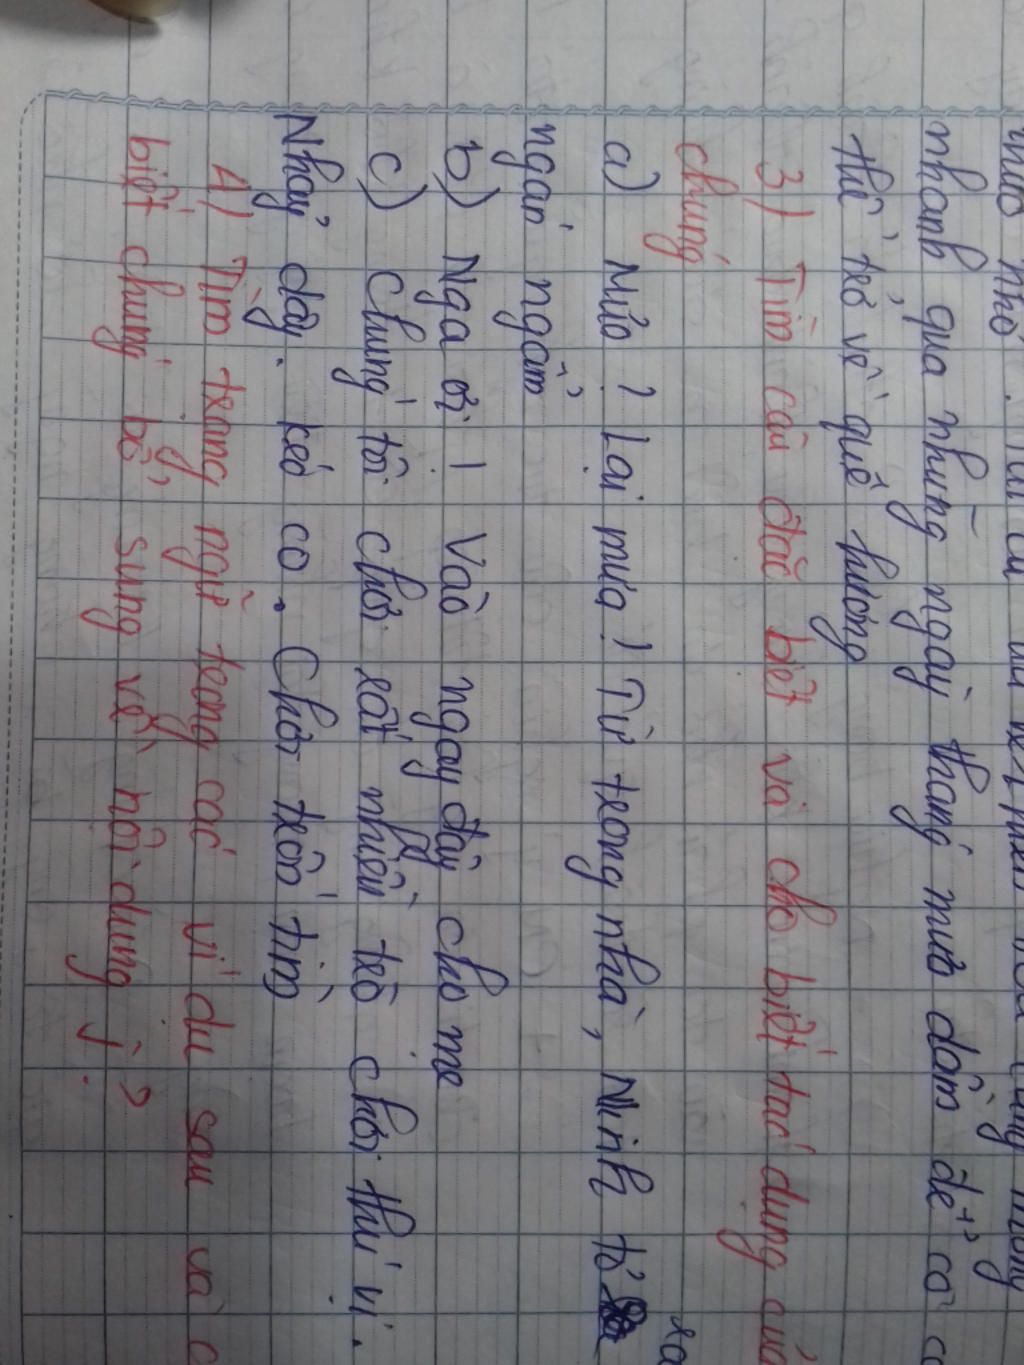 nhanh qua những ngày tháng mưa dầm để có c
thể trở về quê hương
3) Tìm câu đặc biệt và cho biết tác dụng của
chúng
a) Mưa! Lại mưa! Từ trong nhà, Ninh tỏ
ra
ngán ngẩm
b) Nga ơi! Vào ngay đây cho mẹ
c) Chúng tôi chơi rất nhiều trò chơi thú vị.
Nhảy dây. kéo co. Chơi trốn tìm
4) Tìm trạng ngữ trong các ví dụ sau và c
biết chúng bổ sung về nội dung j?